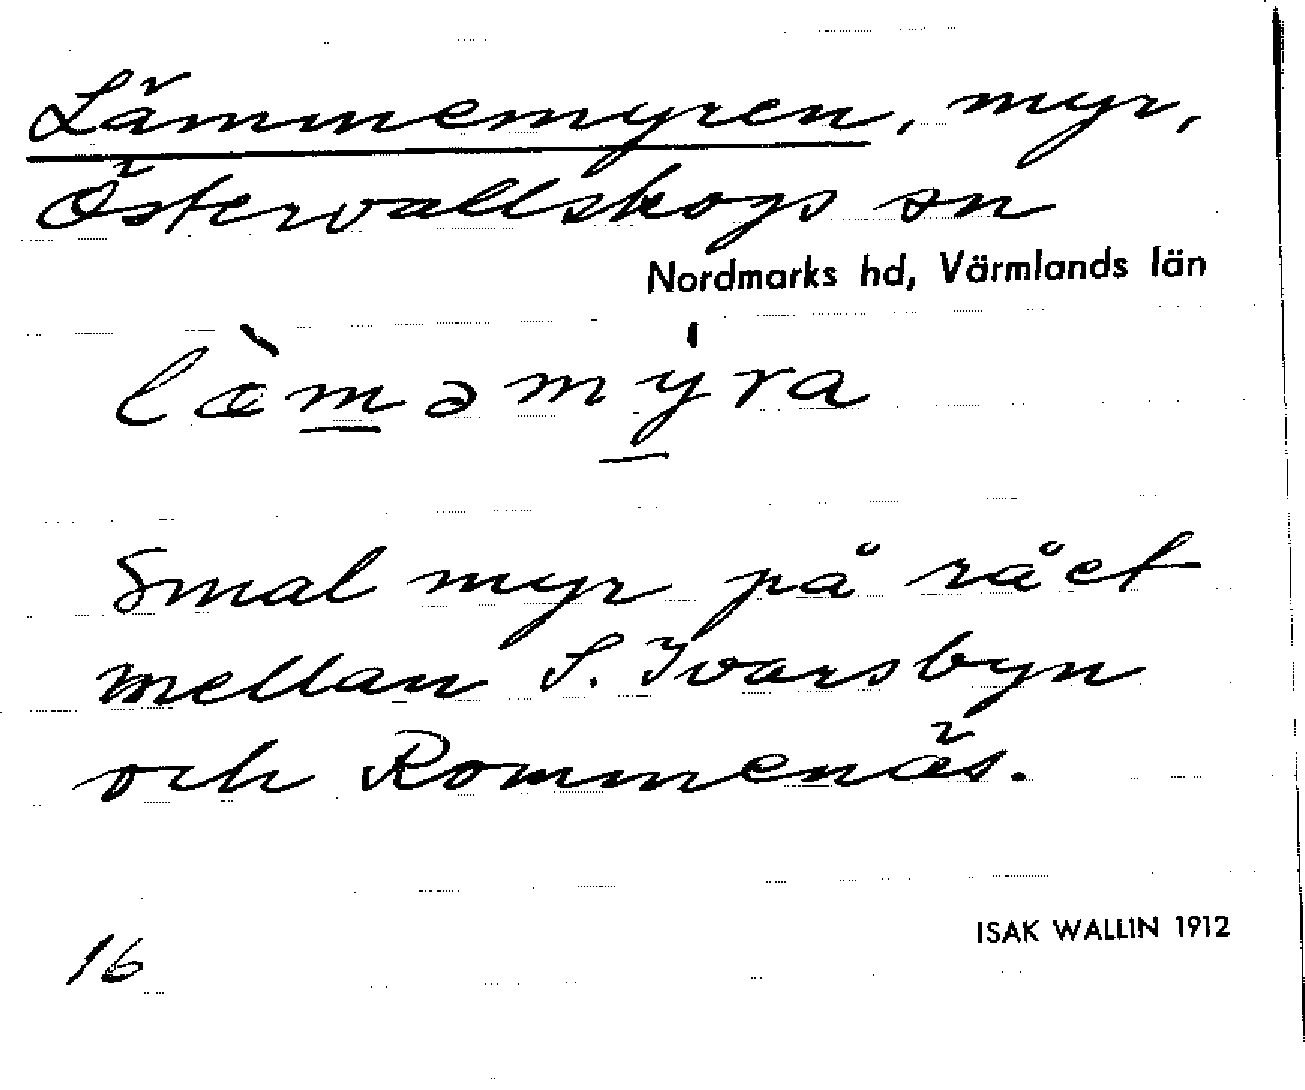 Lämmemyren, myr,
Östervallskogs sn
Nordmarks hd, Värmlands län
læ̀m̲əmý̲ra
Smal myr på rået
mellan S. Ivarsbyn
och Rommenäs.
ISAK WALLIN 1912
16